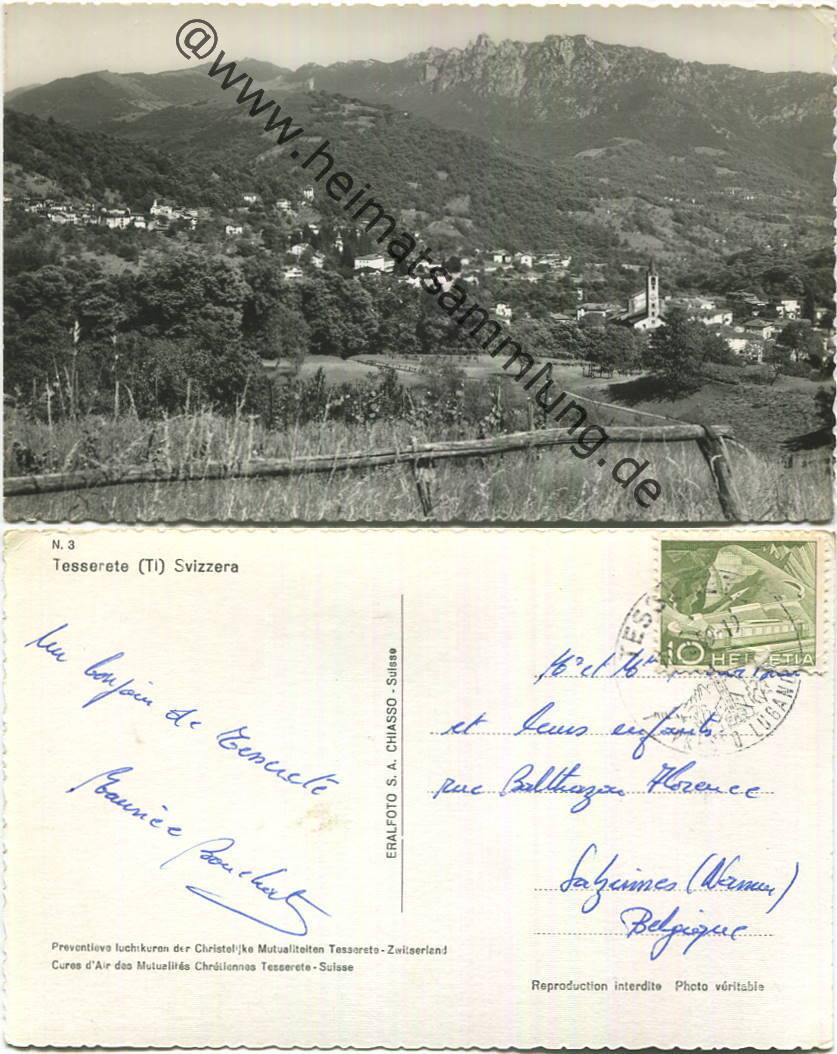 @www.heimatsammlung.de
N. 3
Tesserete (TI) Svizzera
Un bonjour de Tesserete
Maurice Bouchat
ERALFOTO S. A. CHIASSO - Suisse
Preventieve luchtkuren der Christelijke Mutualiteiten Tesserete - Zwitserland
Cures d'Air des Mutualités Chrétiennes Tesserete - Suisse
10 HELVETIA
LUGANO
Mr et Mme
et leurs enfants
rue Balthazar Florence
Salzinnes (Namur)
Belgique
Reproduction interdite Photo véritable